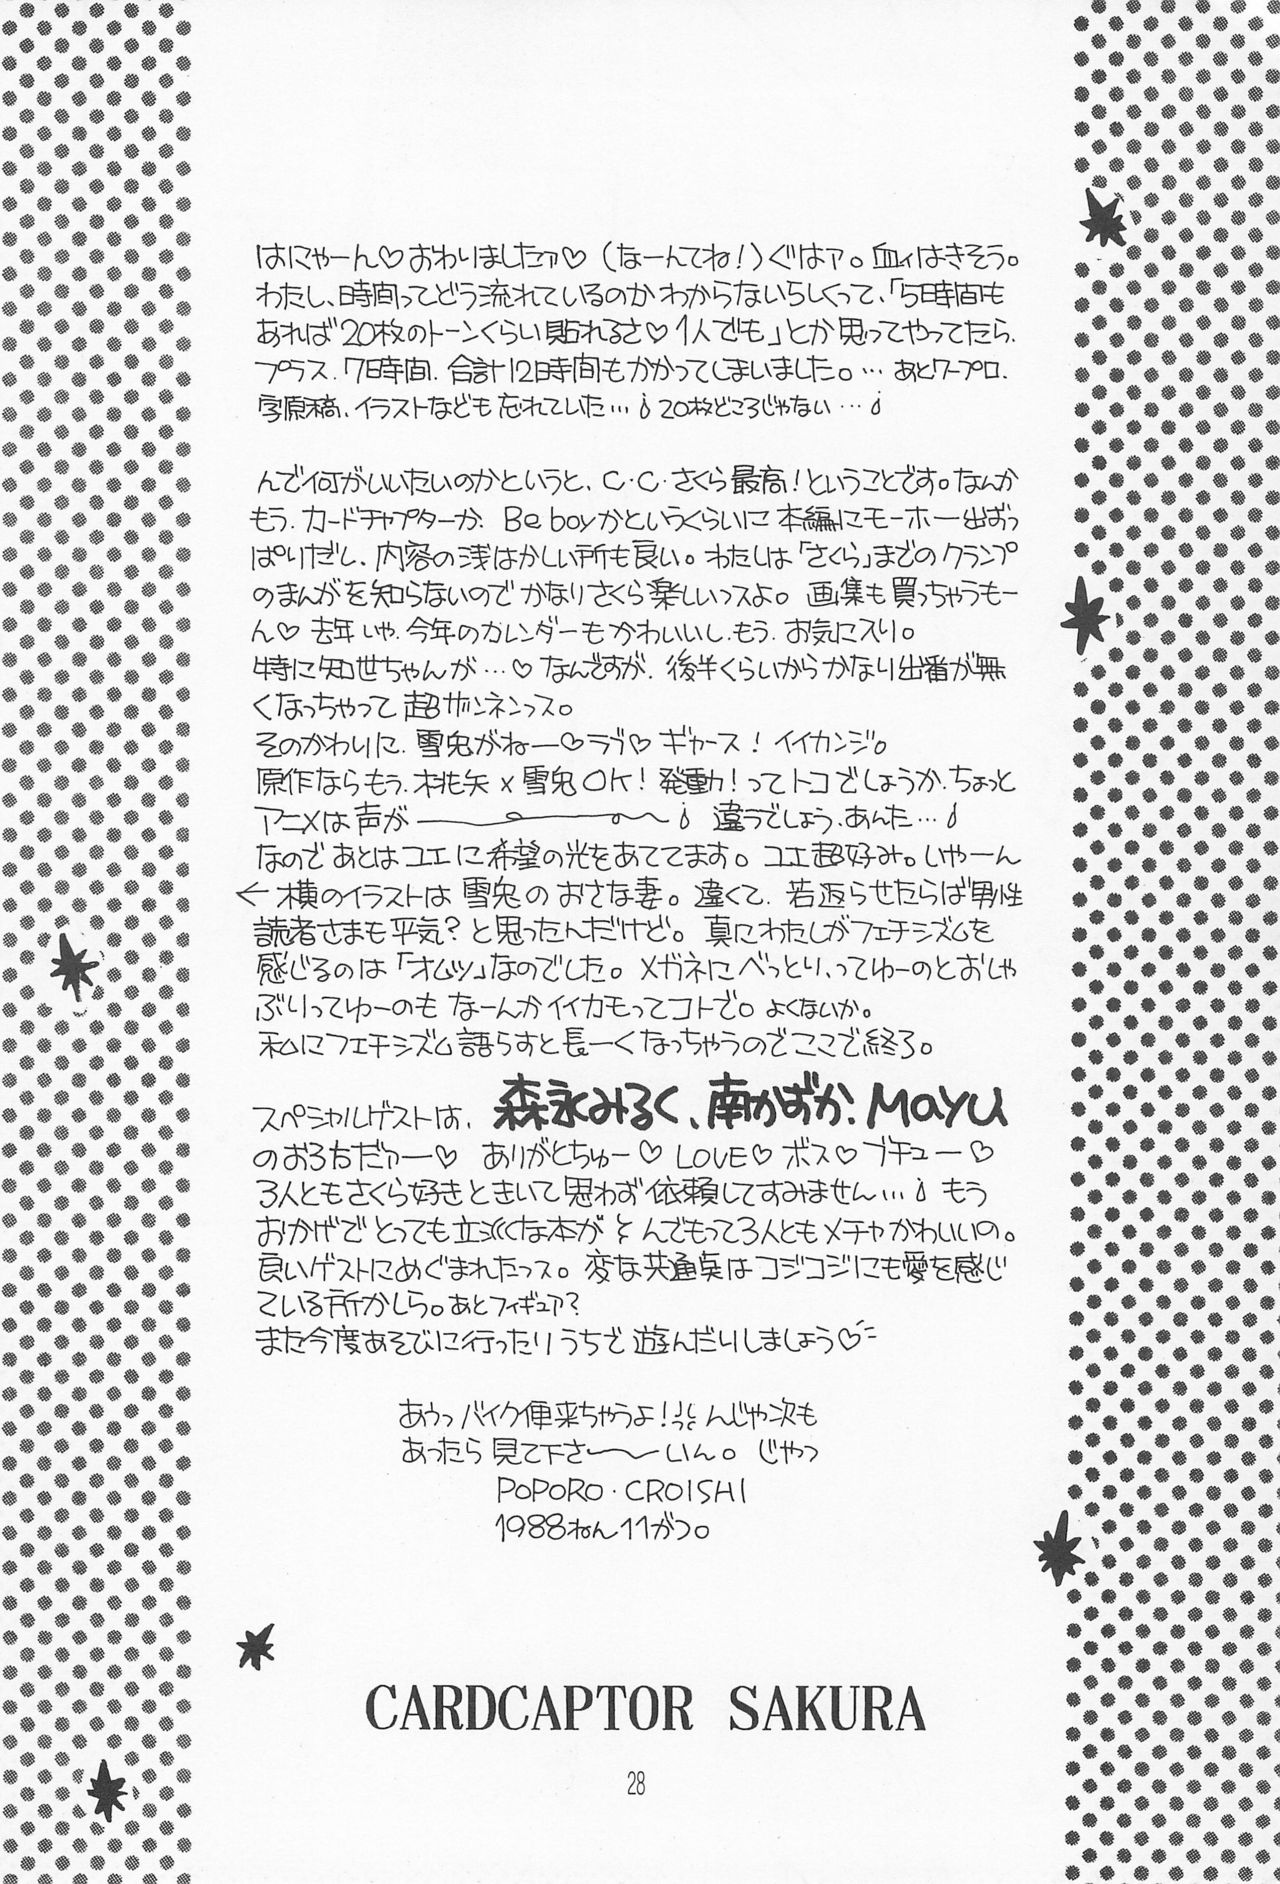 はにゃーん♡おわりましたァ♡(なーんてね!)ぐはァ。血ィはきそう。
わたし、時間ってどう流れているのかわからないらしくって、「5時間も
あれば20枚のトーンくらい貼れるさ♡1人でも」とか思ってやってたら、
プラス、7時間、合計12時間もかかってしまいました。…あとワープロ、
字原稿、イラストなども忘れていた…20枚どころじゃない…
んで何がいいたいのかというと、C・C・さくら最高!ということです。なんか
もう、カードチャプターか、Be boyかというくらいに本編にモーホー出おっ
ぱりだし、内容の浅はかしい所も良い。わたしは「さくら」までのクランプ
のまんがを知らないのでかなりさくら楽しいっスよ。画集も買っちゃうもー
ん♡去年いや、今年のカレンダーもかわいいし、もう、お気に入り。
特に知世ちゃんが…♡なんですが、後半くらいからかなり出番が無
くなっちゃって超ザンネンっス。
そのかわりに、雪兎がねー♡ラブ♡ギャース!イイカンジ。
原作ならもう、桃矢×雪兎OK!発動!ってトコでしょうか、ちょっと
アニメは声が――――〜 違うでしょう、あんた…
なのであとはユエに希望の光をあててます。ユエ超好み。いやーん
←横のイラストは雪兎のおさな妻。違くて、若返らせたらば男性
読者さまも平気?と思ったんだけど。真にわたしがフェチシズムを
感じるのは「オムツ」なのでした。メガネにべっとり、ってゆーのとおしゃ
ぶりってゆーのもなーんかイイカモってコトで。よくないか。
私にフェチシズム語らすと長ーくなっちゃうのでここで終了。
スペシャルゲストは、森永みるく、南かずか、Mayu
のお3方だァー♡ ありがとちゅー♡LOVE♡ボス♡ブチュー♡
3人ともさくら好きときいて思わず依頼してすみません…もう
おかげでとっても立派な本がとんでもって3人ともメチャかわいいの。
良いゲストにめぐまれたっス。変な共通点はコジコジにも愛を感じ
ている所かしら。あとフィギュア?
また今度あそびに行ったりうちで遊んだりしましょう♡
あうっバイク便来ちゃうよ!んじゃ次も
あったら見て下さ〜〜いん。じゃっ
POPORO・CROISHI
1988ねん11がつ。
CARDCAPTOR SAKURA
28